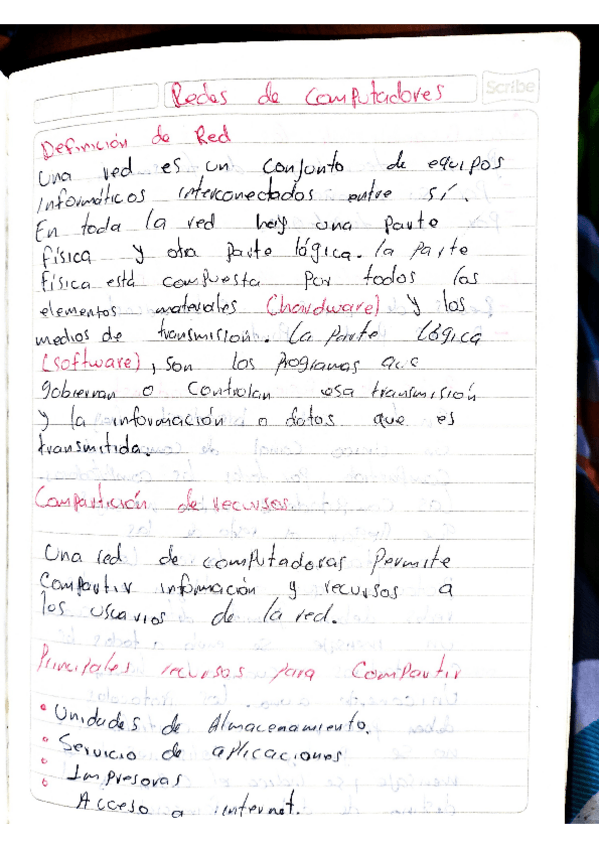 Redes de Computadores
Scribe
Definición de Red
Una red es un conjunto de equipos
informáticos interconectados entre sí.
En toda la red hay una parte
física y otra parte lógica. la parte
física está compuesta por todos los
elementos materiales (hardware) y los
medios de transmisión. La parte lógica
(software), son los programas que
gobiernan o controlan esa transmisión
y la información o datos que es
transmitida.
Compartición de recursos.
Una red de computadoras Permite
Compartir información y recursos a
los usuarios de la red.
Principales recursos para Compartir
• Unidades de Almacenamiento.
• Servicio de aplicaciones
• Impresoras
• Acceso a internet.